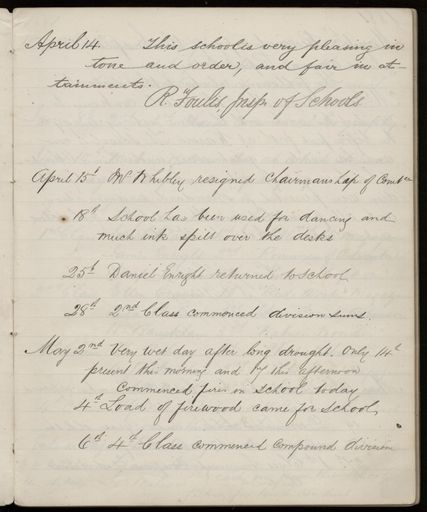 April 14. This school is very pleasing in
tone and order, and fair in at-
tainments.
R Foulis, Insp. of Schools
April 15th Mr Whibley resigned Chairmanship of Comtee
18th School has been used for dancing and
much ink spilt over the desks
25th Daniel Enright returned to School
28th 2nd Class commenced division sums.
May 2nd Very wet day after long drought. Only 14
present this morning and 17 this afternoon
Commenced fires in school today
4th Load of firewood came for School,
6th 4th Class commenced compound division